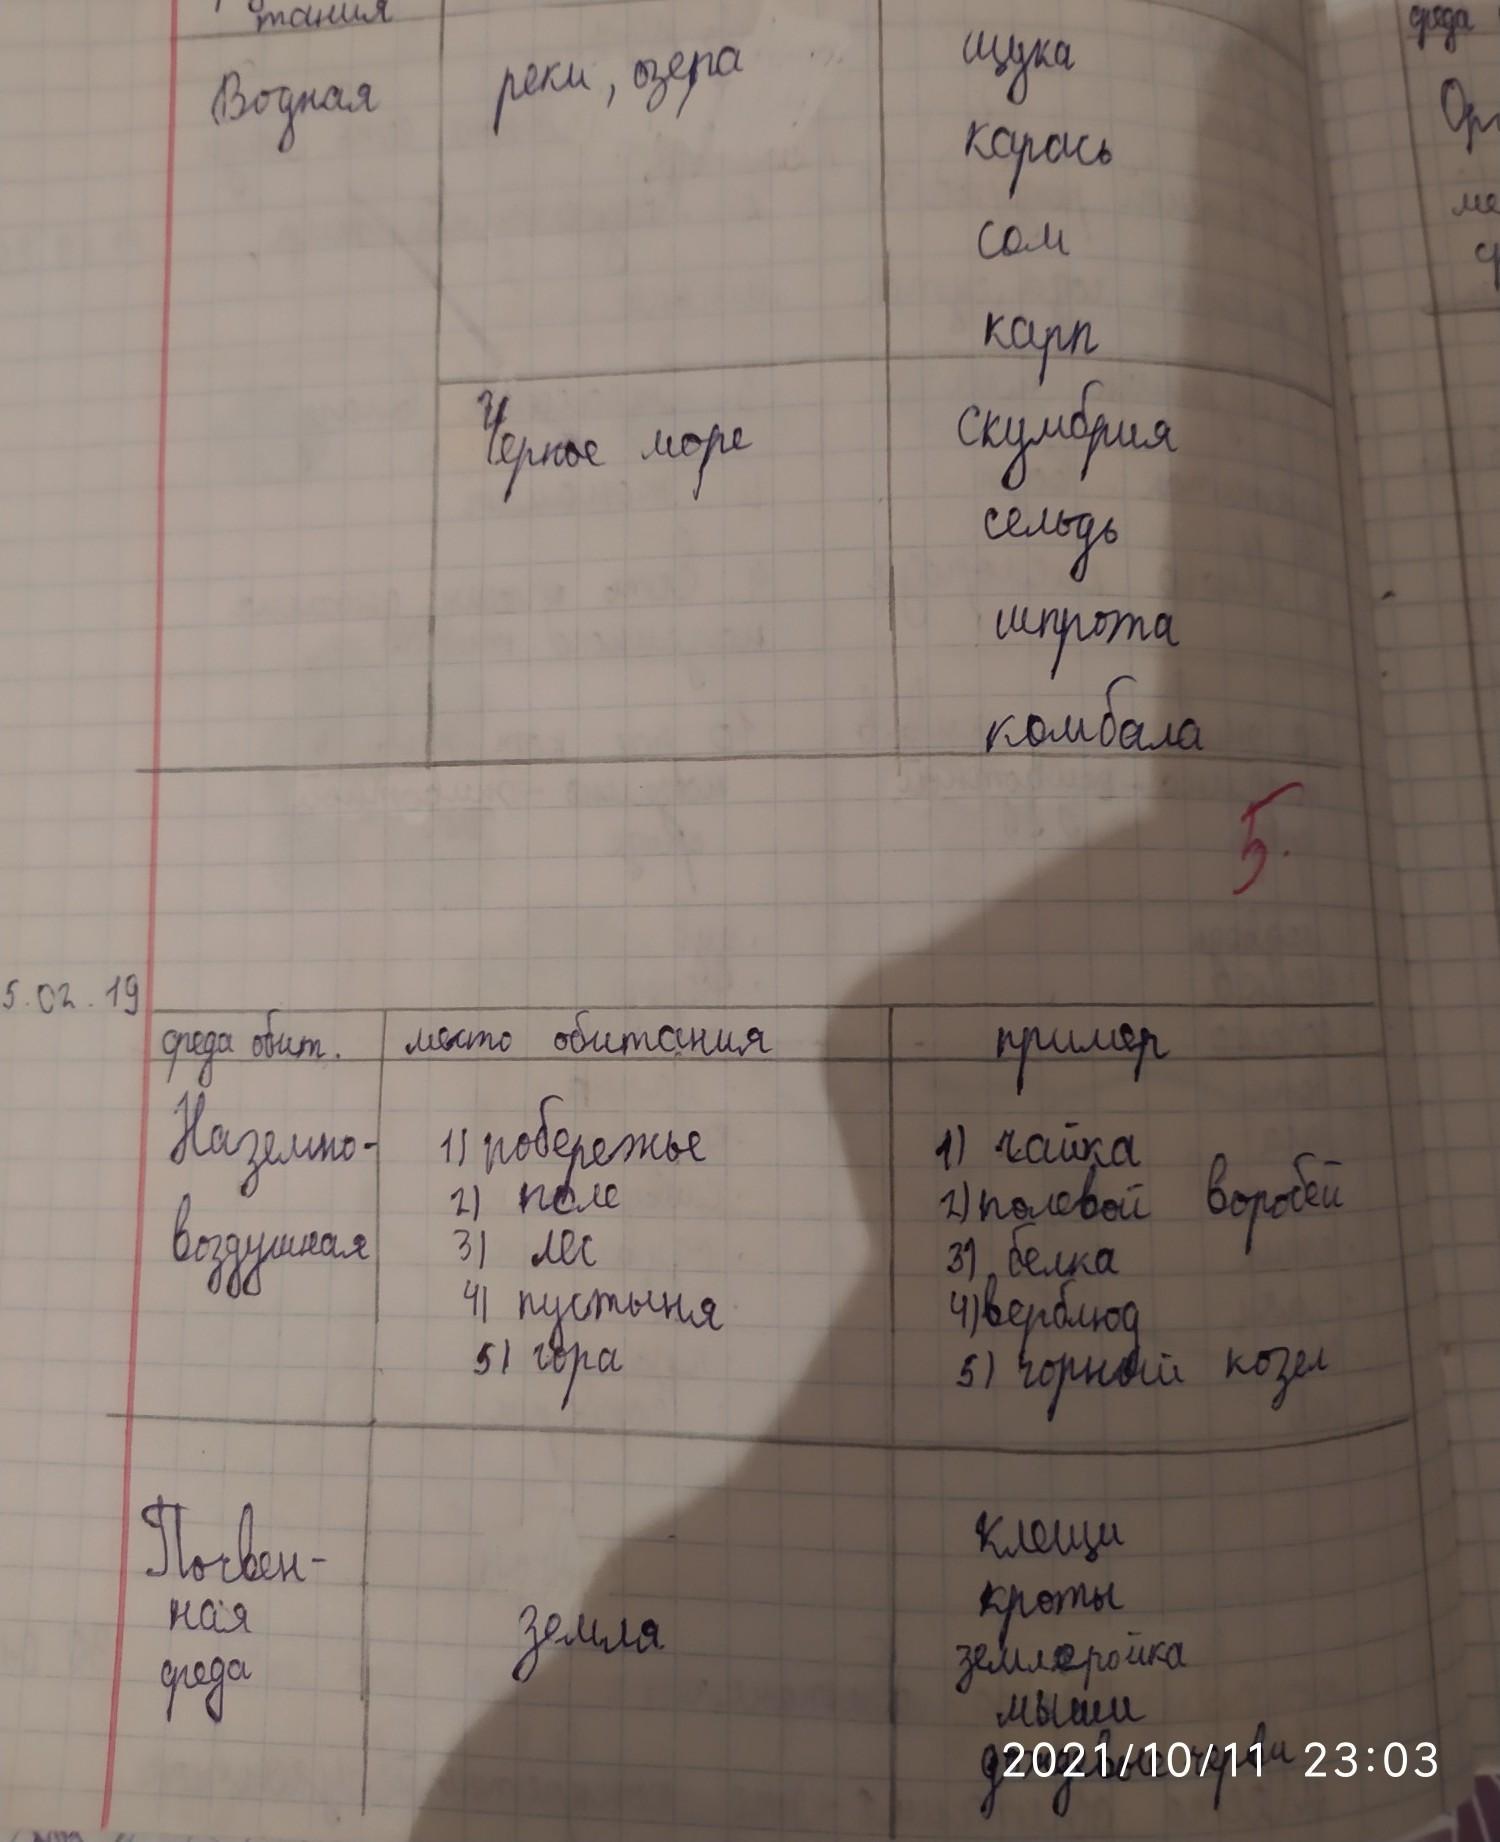 тания
Водная реки, озера щука
карась
сом
карп
Черное море скумбрия
сельдь
шпрота
комбала
5.
5.02.19
среда обит. место обитания пример
Наземно- 1) побережье 1) чайка
2) поле 2) полевой воробей
воздушная 3) лес 3) белка
4) пустыня 4) верблюд
5) гора 5) горный козел
Почвен- клещи
ная земля кроты
среда землеройка
мыши
дождевые черви
2021/10/11 23:03
среда